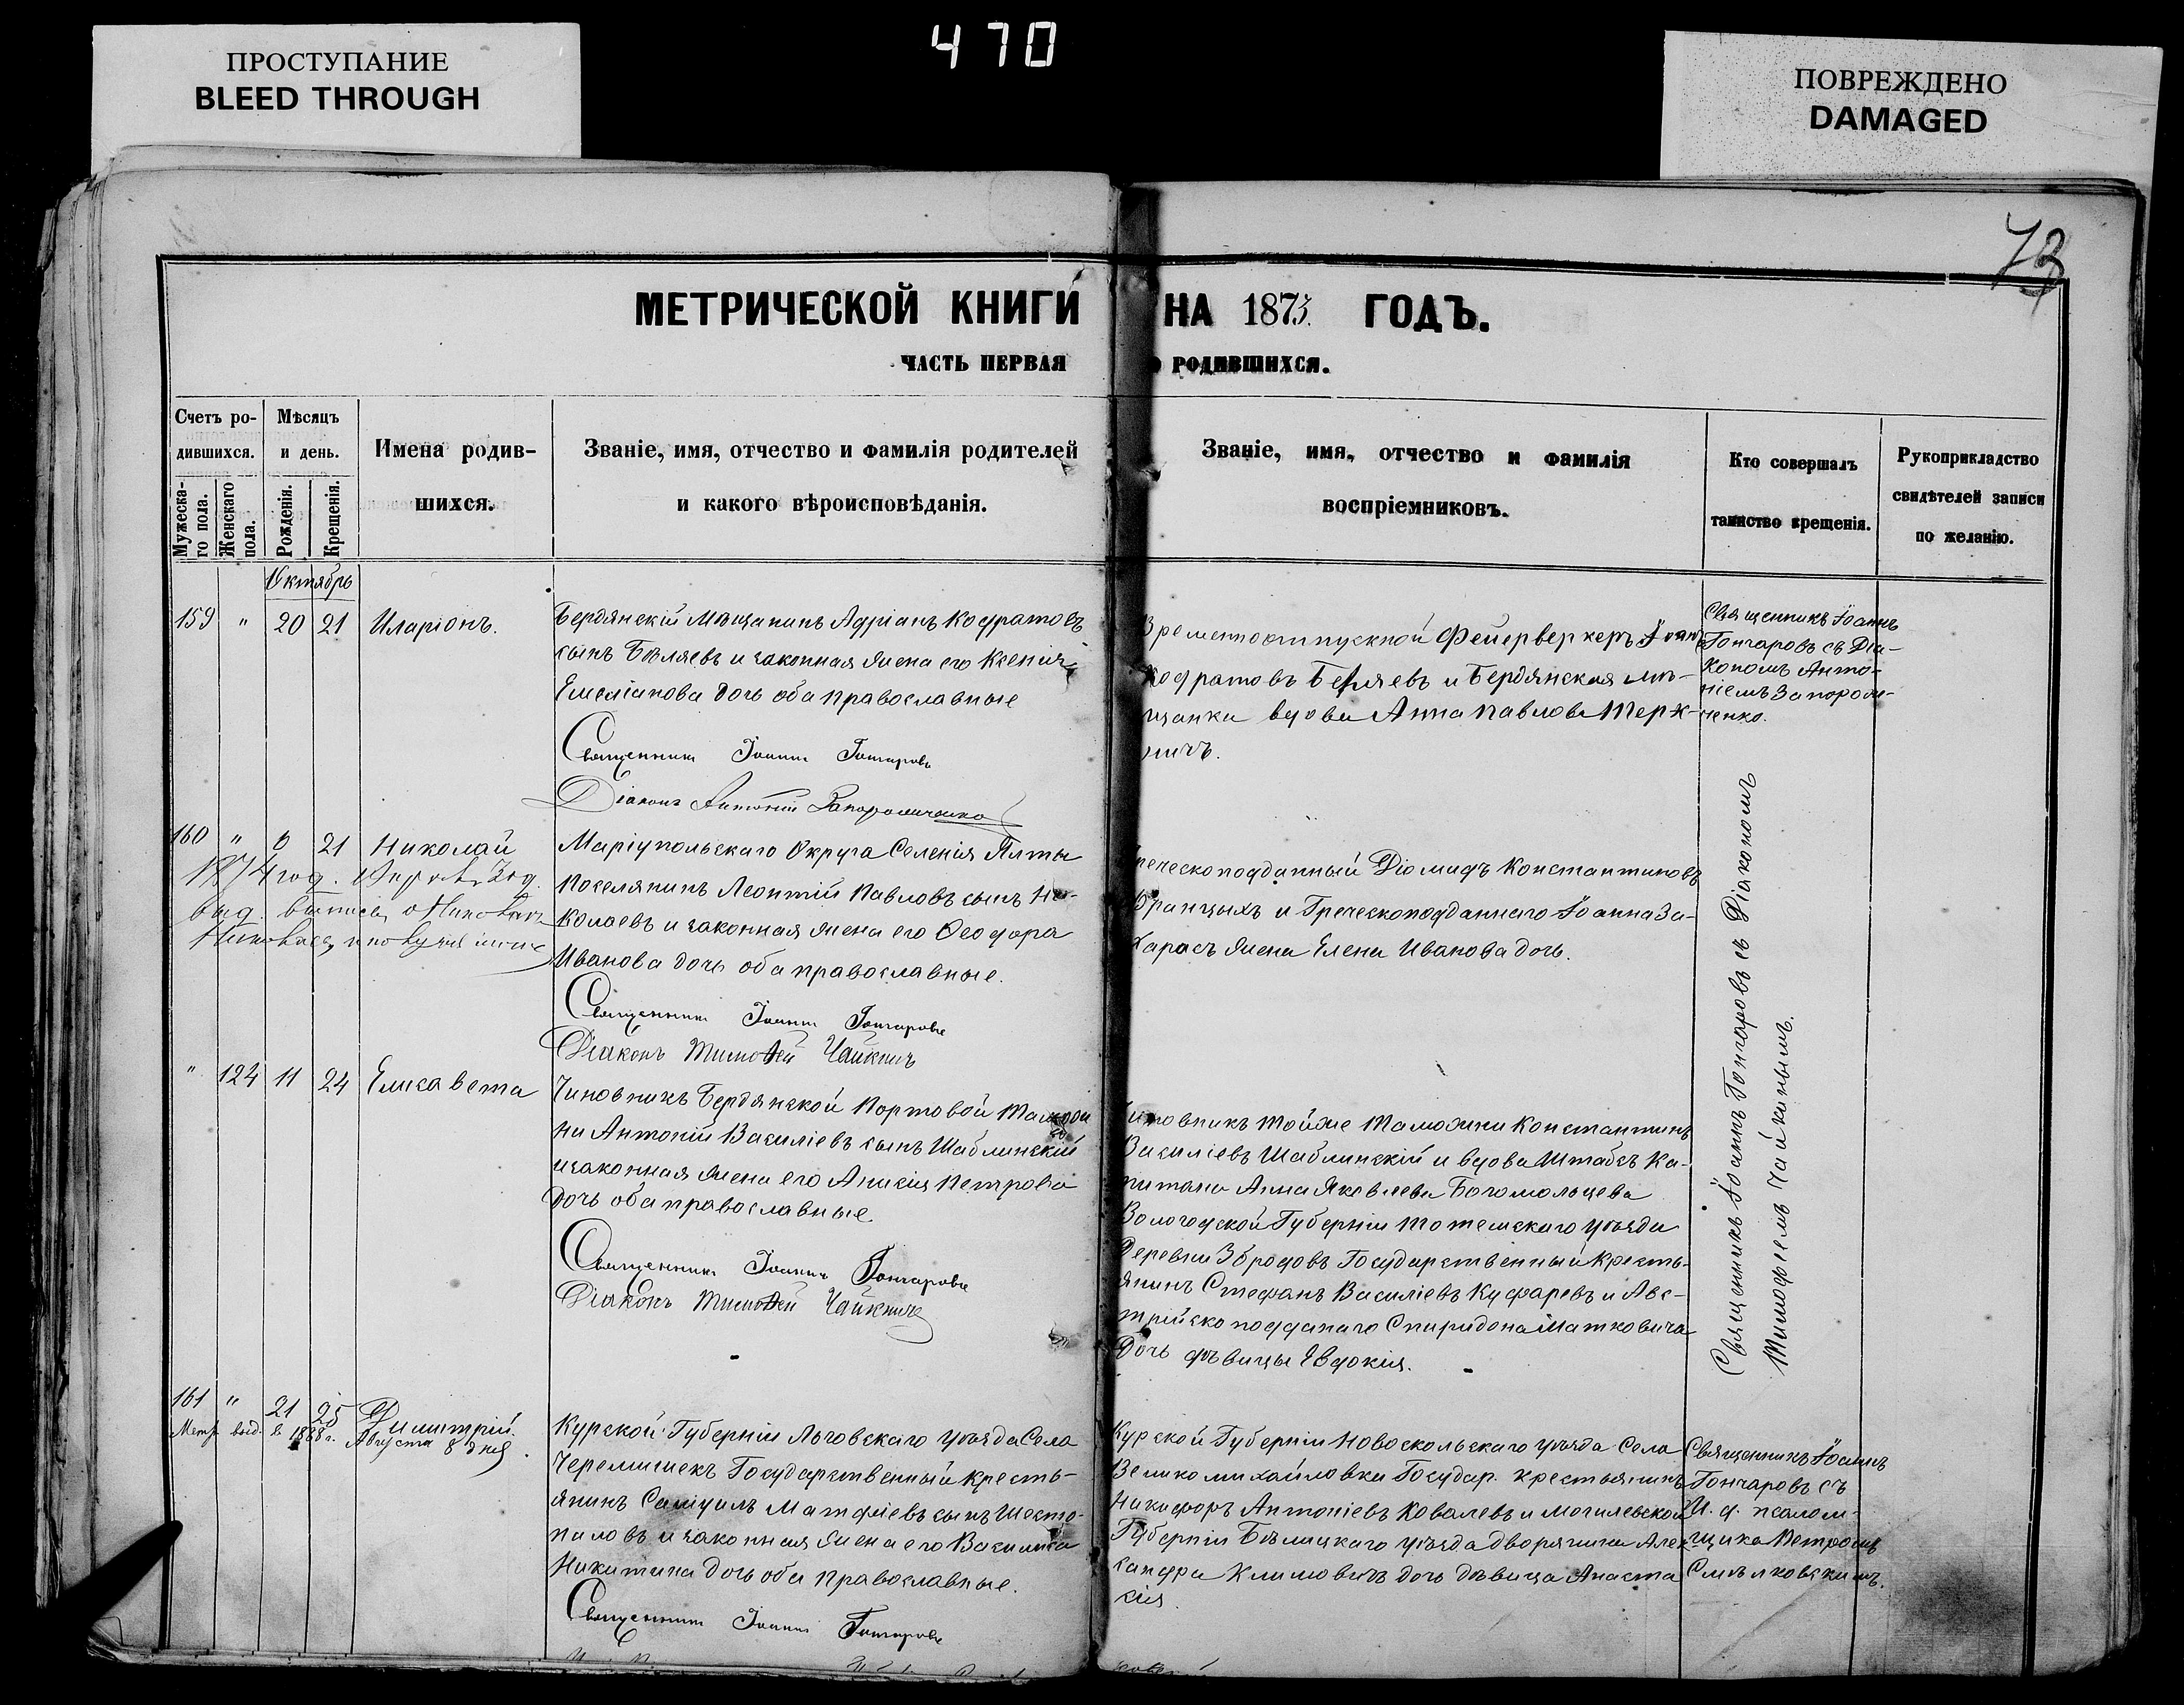 ПРОСТУПАНИЕ
BLEED THROUGH
470
ПОВРЕЖДЕНО
DAMAGED
73
МЕТРИЧЕСКОЙ КНИГИ НА 1873. ГОДЪ.
ЧАСТЬ ПЕРВАЯ О РОДИВШИХСЯ.
Счетъ ро-
дившихся.
Мужеска-
го пола.
Женскаго
пола.
Мѣсяцъ
и день.
Рожденія.
Крещенія.
Имена родив-
шихся.
Званіе, имя, отчество и фамилія родителей
и какого вѣроисповѣданія.
Званіе, имя, отчество и фамилія
воспріемниковъ.
Кто совершалъ
таинство крещенія.
Рукоприкладство
свидѣтелей записи
по желанію.
Октябрь
159 " 20 21 Иларіонъ.
Бердянскій Мѣщанинъ Адріанъ Кодратовъ
сынъ Бѣляевъ и законная жена его Ксенія
Емеліанова дочь оба православные
Священникъ Іоаннъ Гончаровъ
Діаконъ Антоній Запорожченко
Временноотпускной Фейерверкеръ Іоан
Кодратовъ Беляевъ и Бердянская мѣ-
щанка вдова Анна Павлова Терж-
ничъ.
Священникъ Іоаннъ
Гончаровъ съ Діа-
кономъ Анто-
ніемъ Запорож-
ченко.
160 " 6 21 Николай
1874 год.
выд.
Маріупольскаго Округа Селенія Ялты
Поселянинъ Леонтій Павловъ сынъ Ни-
колаевъ и законная жена его Ѳеодора
Иванова дочь оба православные.
Священникъ Іоаннъ Гончаровъ
Діаконъ Тимофей Чайкинъ
Греческоподданный Діомидъ Константиновъ
Бранцыхъ и Греческоподданнаго Іоанна За-
харасъ жена Елена Иванова дочь.
Священникъ Іоаннъ Гончаровъ съ Діакономъ
Тимофеемъ Чайкинымъ.
" 124 11 24 Елисавета
Чиновникъ Бердянской Портовой Таможи
ни Антоній Василіевъ сынъ Шаблинскій
и законная жена его Анисія Петрова
дочь оба православные
Священникъ Іоаннъ Гончаровъ
Діаконъ Тимофей Чайкинъ
Чиновникъ тойже Таможни Константинъ
Василіевъ Шаблинскій и вдова Штабсъ Ка-
питана Анна Яковлева Богомольцева
Вологодской Губерніи Тотемскаго уѣзда
Деревни Збродовъ Государственный Кресть-
янинъ Стефанъ Василіевъ Куфаревъ и Авс-
трійско подданаго Спиридона Матковича
дочь дѣвицы Евдокія.
161 " 21 25 Димитрій.
Метр. выд. в 1888 г. Августа 8 дня.
Курской Губерніи Льговскаго уѣзда Села
Черемошекъ Государственный Кресть-
янинъ Самуилъ Матфіевъ сынъ Шесто-
паловъ и законная жена его Василиса
Никитина дочь оба православные.
Священникъ Іоаннъ Гончаровъ
Курской Губерніи Новоскольскаго уѣзда Села
Великомихайловки Государ. крестьянинъ
Никифоръ Антоніевъ Ковалевъ и Могилевской
Губерніи Бѣлицкаго уѣзда дворянина Алек
сандра Климовичъ дочь дѣвица Анаста
сія.
Священникъ Іоаннъ
Гончаровъ съ
И. д. псалом-
щика Петромъ
Смѣлковскимъ.